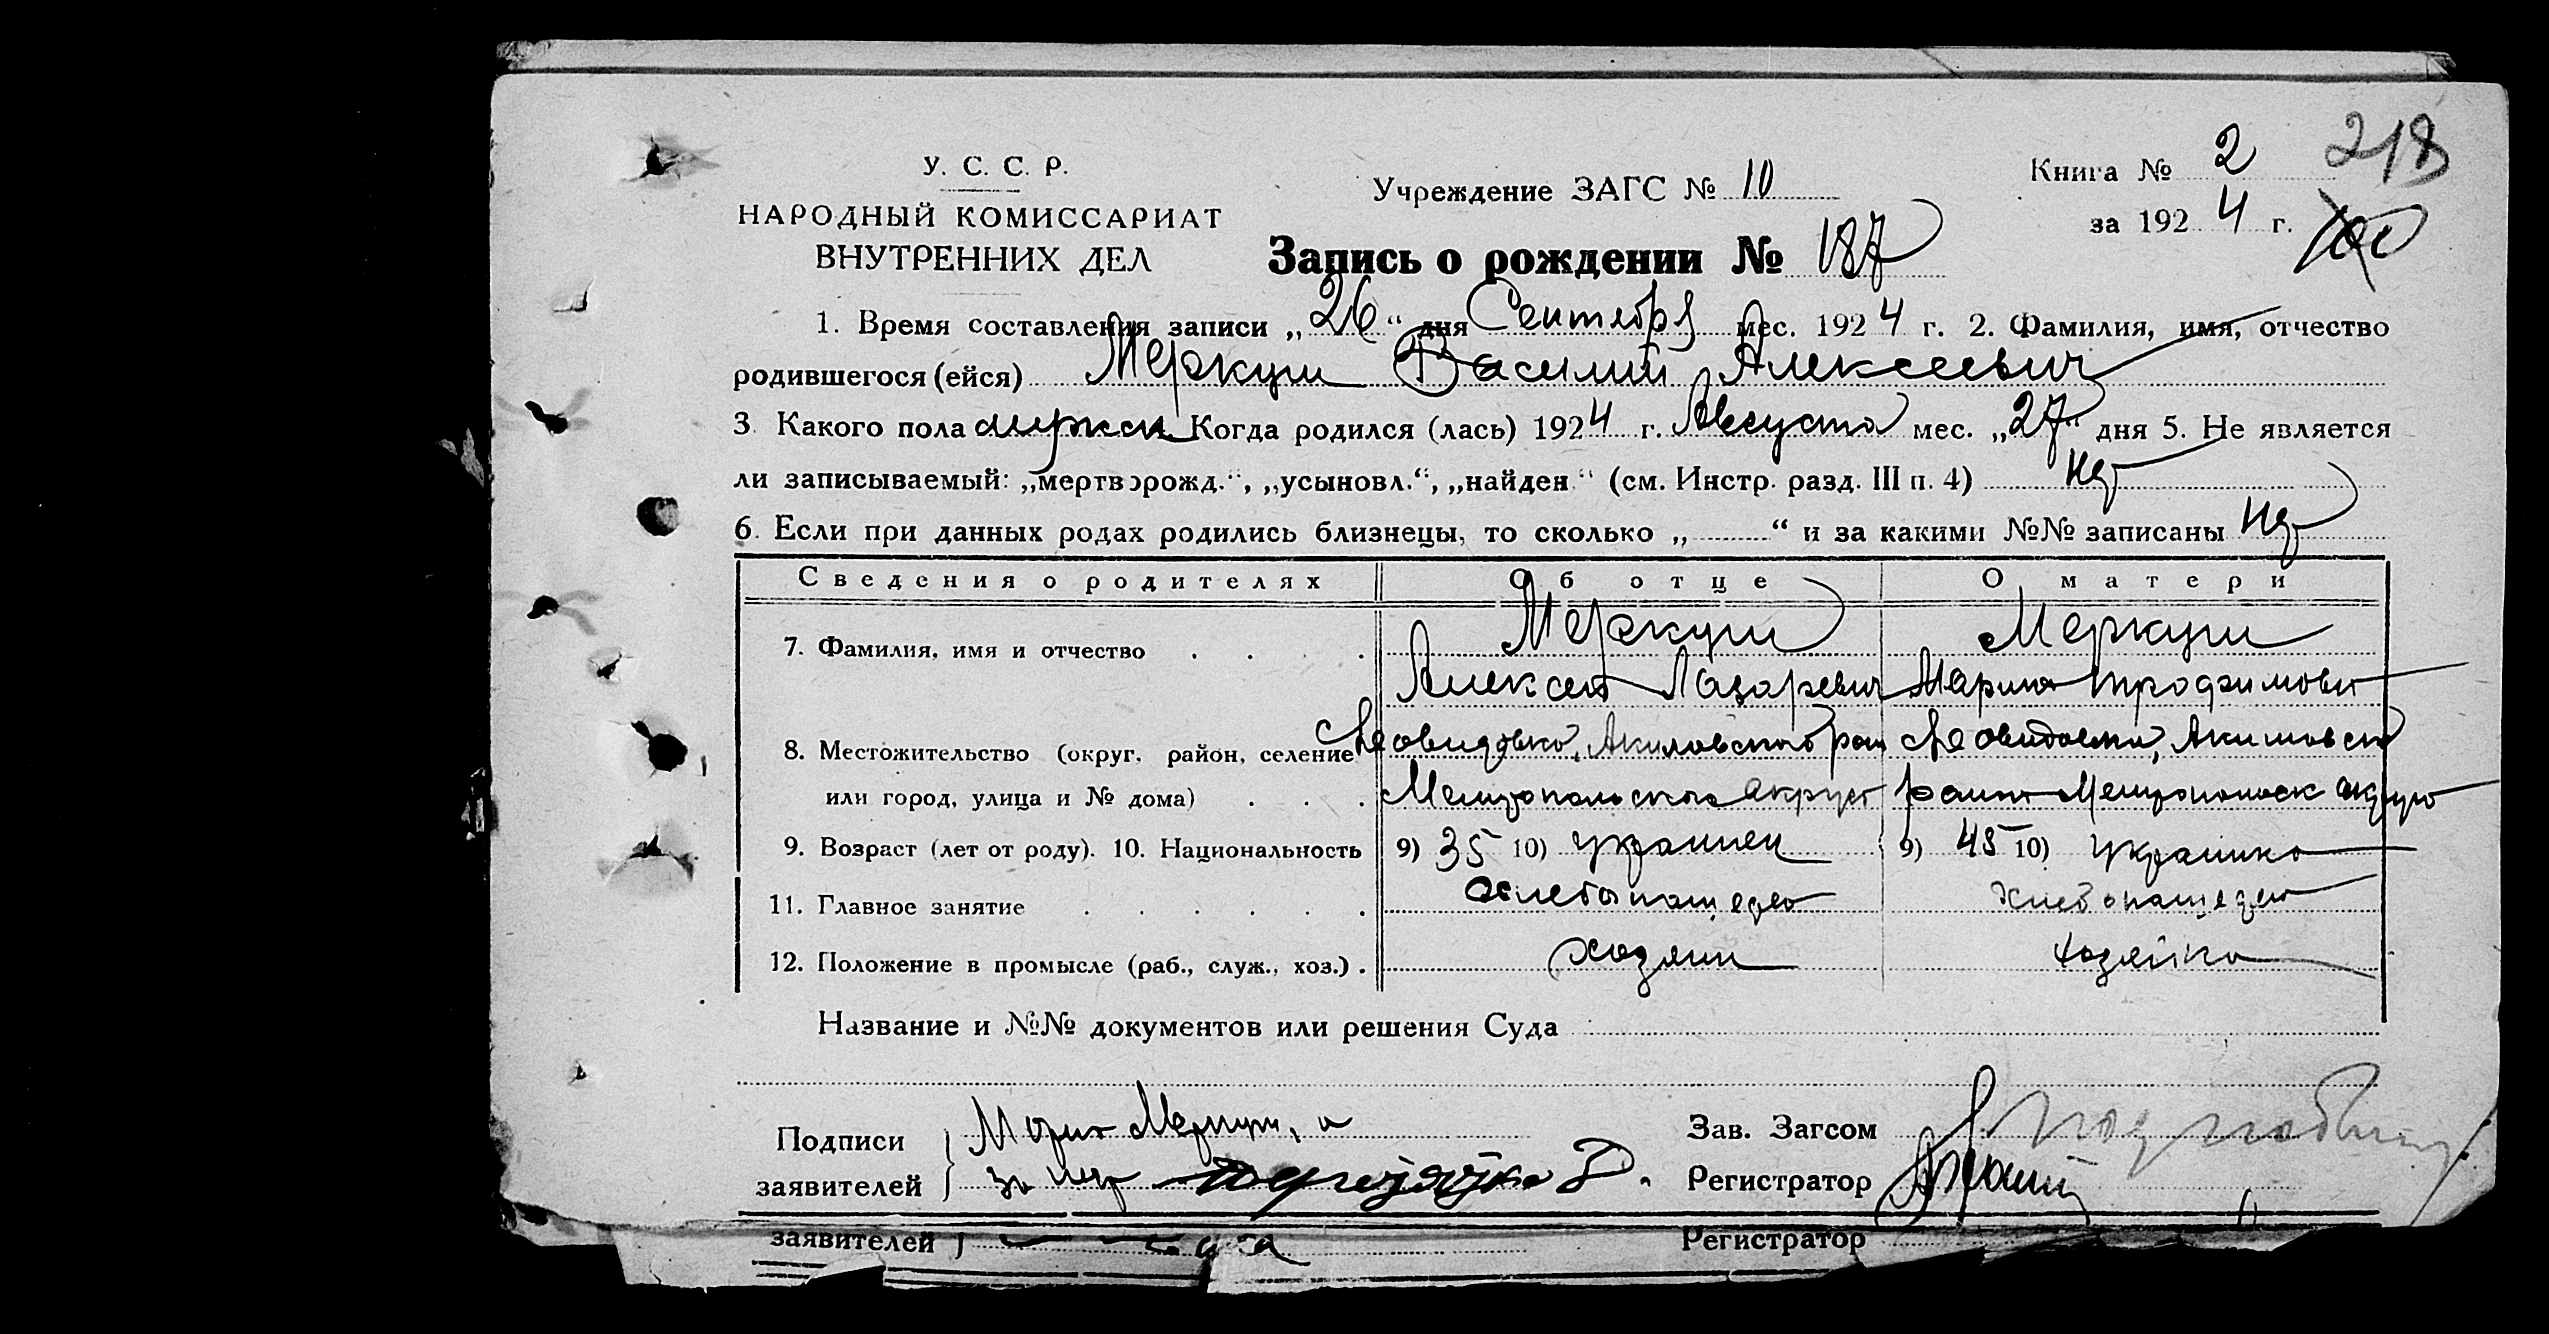 У. С. С. Р.
НАРОДНЫЙ КОМИССАРИАТ
ВНУТРЕННИХ ДЕЛ
Учреждение ЗАГС № 10
Книга № 2 218
за 1924 г.
Запись о рождении № 187
1. Время составления записи „26“ дня Сентября мес. 1924 г. 2. Фамилия, имя, отчество
родившегося (ейся) Меркуш Василий Алексеевич
3. Какого пола мужск Когда родился (лась) 1924 г. Августа мес. „27“ дня 5. Не является
ли записываемый: „мертворожд.“, „усыновл.“, „найден.“ (см. Инстр. разд. III п. 4) нет
6. Если при данных родах родились близнецы, то сколько „ “ и за какими №№ записаны нет
Сведения о родителях Об отце О матери
7. Фамилия, имя и отчество Меркуш Меркуш
Алексей Лазаревич Мария Трофимовн
8. Местожительство (округ, район, селение Акимовского рай Акимовск
или город, улица и № дома) Мелитопольского округа район Мелитопольск округ
9. Возраст (лет от роду). 10. Национальность 9) 35 10) украинец 9) 45 10) украинка
11. Главное занятие хлебопашество хлебопашество
12. Положение в промысле (раб., служ., хоз.) хозяин хозяйка
Название и №№ документов или решения Суда
Подписи Мария Меркуш, а Зав. Загсом
заявителей за нее Регистратор
заявителей Регистратор